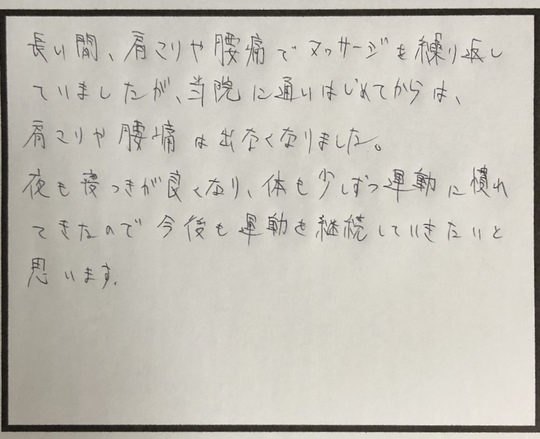 長い間、肩こりや腰痛でマッサージを繰り返し
ていましたが、当院に通いはじめてからは、
肩こりや腰痛は出なくなりました。
夜も寝つきが良くなり、体も少しずつ運動に慣れ
てきたので今後も運動を継続していきたいと
思います。